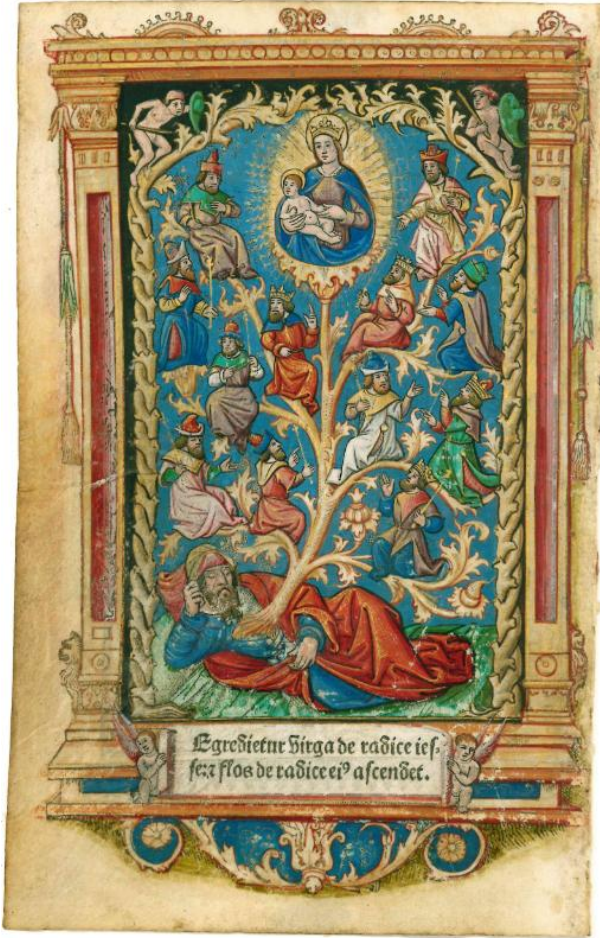 Egredietur virga de radice ies⸗
se: ⁊ flos de radice eiꝰ ascendet.